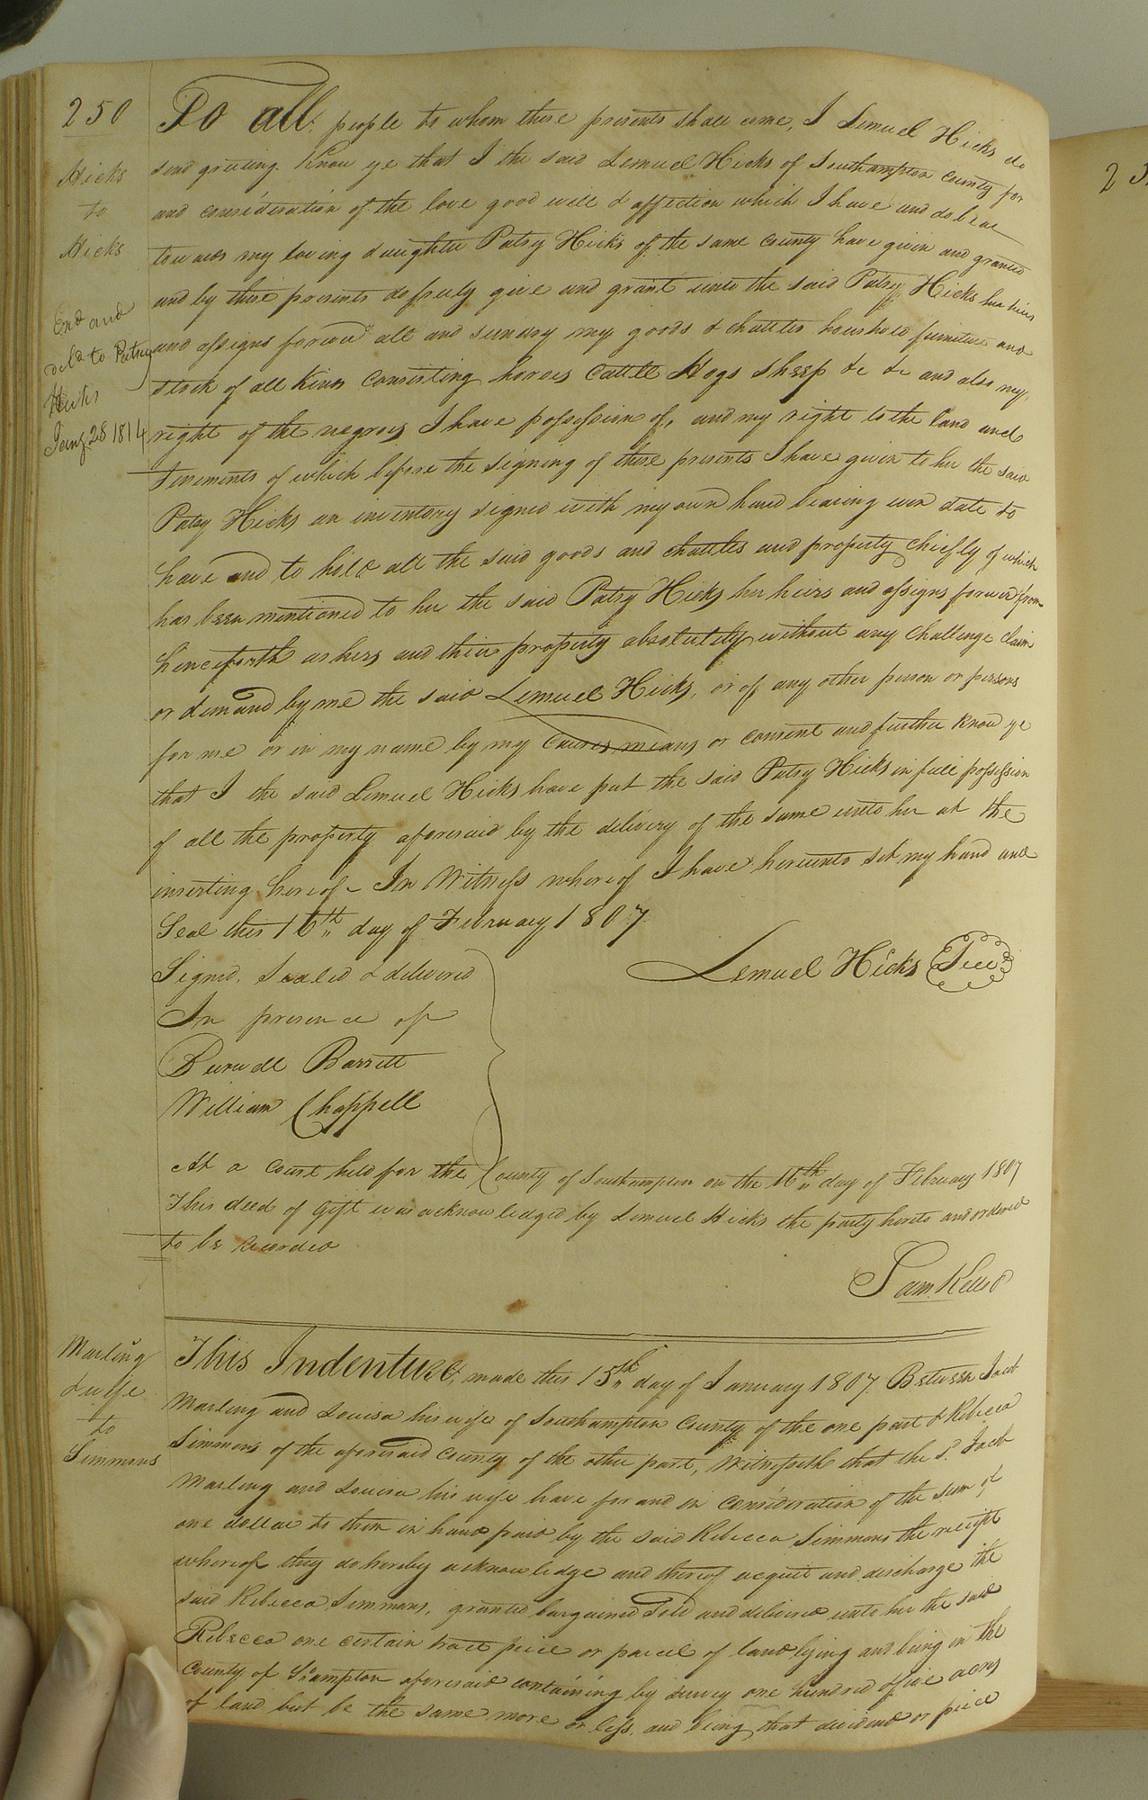 250
To all people to whom these presents shall come, I Lemuel Hicks do
send greeting. Know ye that I the said Lemuel Hicks of Southampton County for
and consideration of the love good will & affection which I have and do bear
towards my loving daughter Patsy Hicks of the same County have given and granted
and by these presents do freely give and grant unto the said Patsy Hicks her heirs
and assigns forever all and sundry my goods & chattles houshold furniture and
stock of all kinds Consisting horses Cattle Hogs Sheep &c &c and also my
right of the negroes I have possession of, and my right to the land and
Tenements of which before the signing of these presents I have given to her the said
Patsy Hicks an inventory signed with my own hand bearing even date to
have and to hold all the said goods and chattles and property chiefly of which
has been mentioned to her the said Patsy Hicks her heirs and assigns forever from
henceforth as hers and their property absolutely without any Challenge Claim
or demand by me the said Lemuel Hicks, or of any other person or persons
for me or in my name by my Causes means or consent and further Know ye
that I the said Lemuel Hicks have put the said Patsy Hicks in full possession
of all the property aforesaid by the delivery of the same unto her at the
inserting hereof - In Witness whereof I have hereunto set my hand and
Seal this 16th day of February 1807
Signed, Sealed & delivered
In presence of
Burwell Barrett
William Chappell
Lemuel Hicks Seal
At a Court held for the County of Southampton on the 16th day of February 1807
This deed of Gift was acknowledged by Lemuel Hicks the party hereto and ordered
to be recorded
Sam Kello
Hicks
to
Hicks
Exd and
deld to Patsy
Hicks
Jany 28 1814
Marling
& wife
to
Simmons
This Indenture, made this 15th day of January 1807 Between Jacob
Marling and Louisa his wife of Southampton County of the one part & Rebecca
Simmons of the aforesaid County of the other part, Witnesseth that the Sd. Jacob
Marling and Louisa his wife have for and in consideration of the sum of
one dollar to them in hand paid by the said Rebecca Simmons the receipt
whereof they do hereby acknowledge and thereof acquit and discharge the
said Rebecca Simmons, granted bargained Sold and delivered unto her the said
Rebecca one certain tract piece or parcel of land lying and being in the
County of Sohampton aforesaid containing by survey one hundred & five acres
of land but be the same more or less, and being that dividend or piece